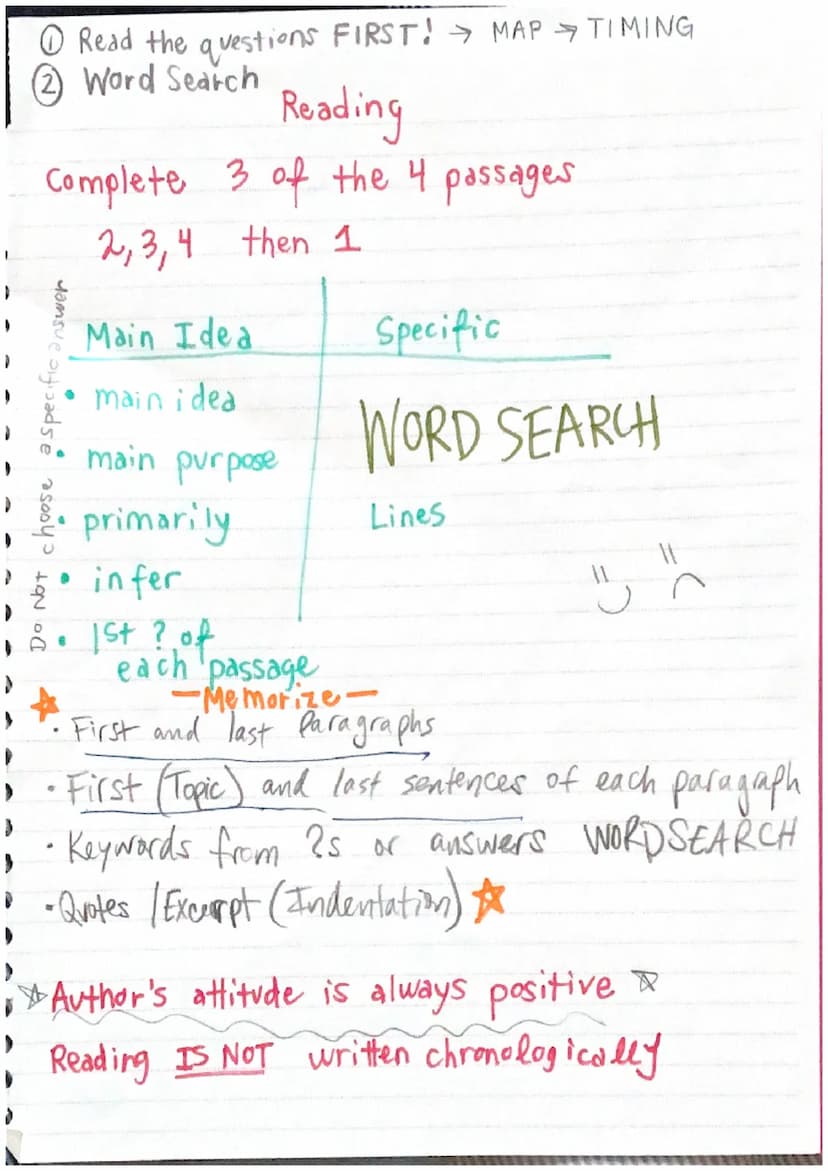 ① Read the questions FIRST! → MAP → TIMING
② Word Search
Reading
Complete 3 of the 4 passages
2,3,4 then 1
Do Not choose a specific answer
Main Idea
Specific
• main idea
WORD SEARCH
• main purpose
• primarily
Lines
• infer
• 1st ? of
each passage
—Memorize—
• First and last Paragraphs
• First (Topic) and last sentences of each paragraph
• Keywords from ?s or answers WORDSEARCH
• Quotes / Excerpt (Indentation) ☆
☆ Author's attitude is always positive ☆
Reading IS NOT written chronologically